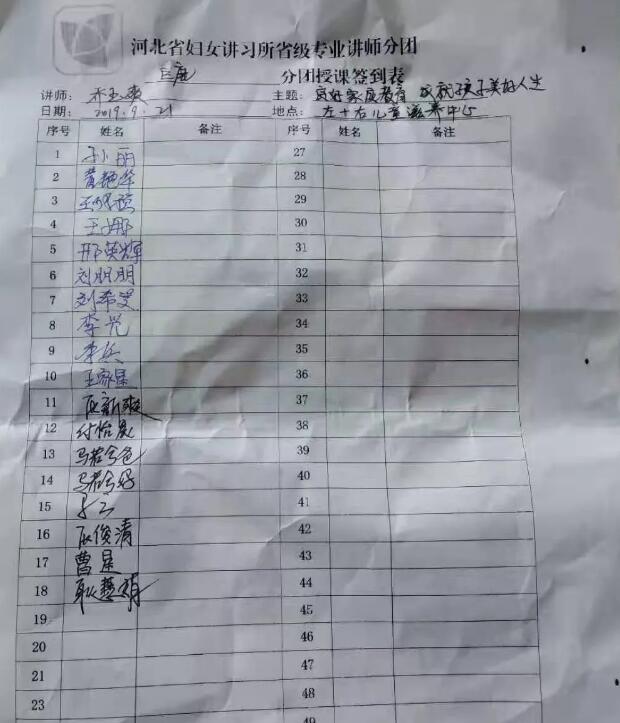 河北省妇女讲习所省级专业讲师分团
分团授课签到表
讲师：
主题：良好家庭教育 成就孩子美好人生
日期：2019.9.21
地点：左十右儿童滋养中心
序号 姓名 备注 序号 姓名 备注
1 孙丽 27
2 黄艳华 28
3 29
4 王娜 30
5 邢英辉 31
6 刘朋朋 32
7 刘希曼 33
8 李光 34
9 李兵 35
10 36
11 37
12 付怡晨 38
13 39
14 40
15 41
16 俊清 42
17 曹星 43
18 耿慧娟 44
19 45
20 46
21 47
23 48
49